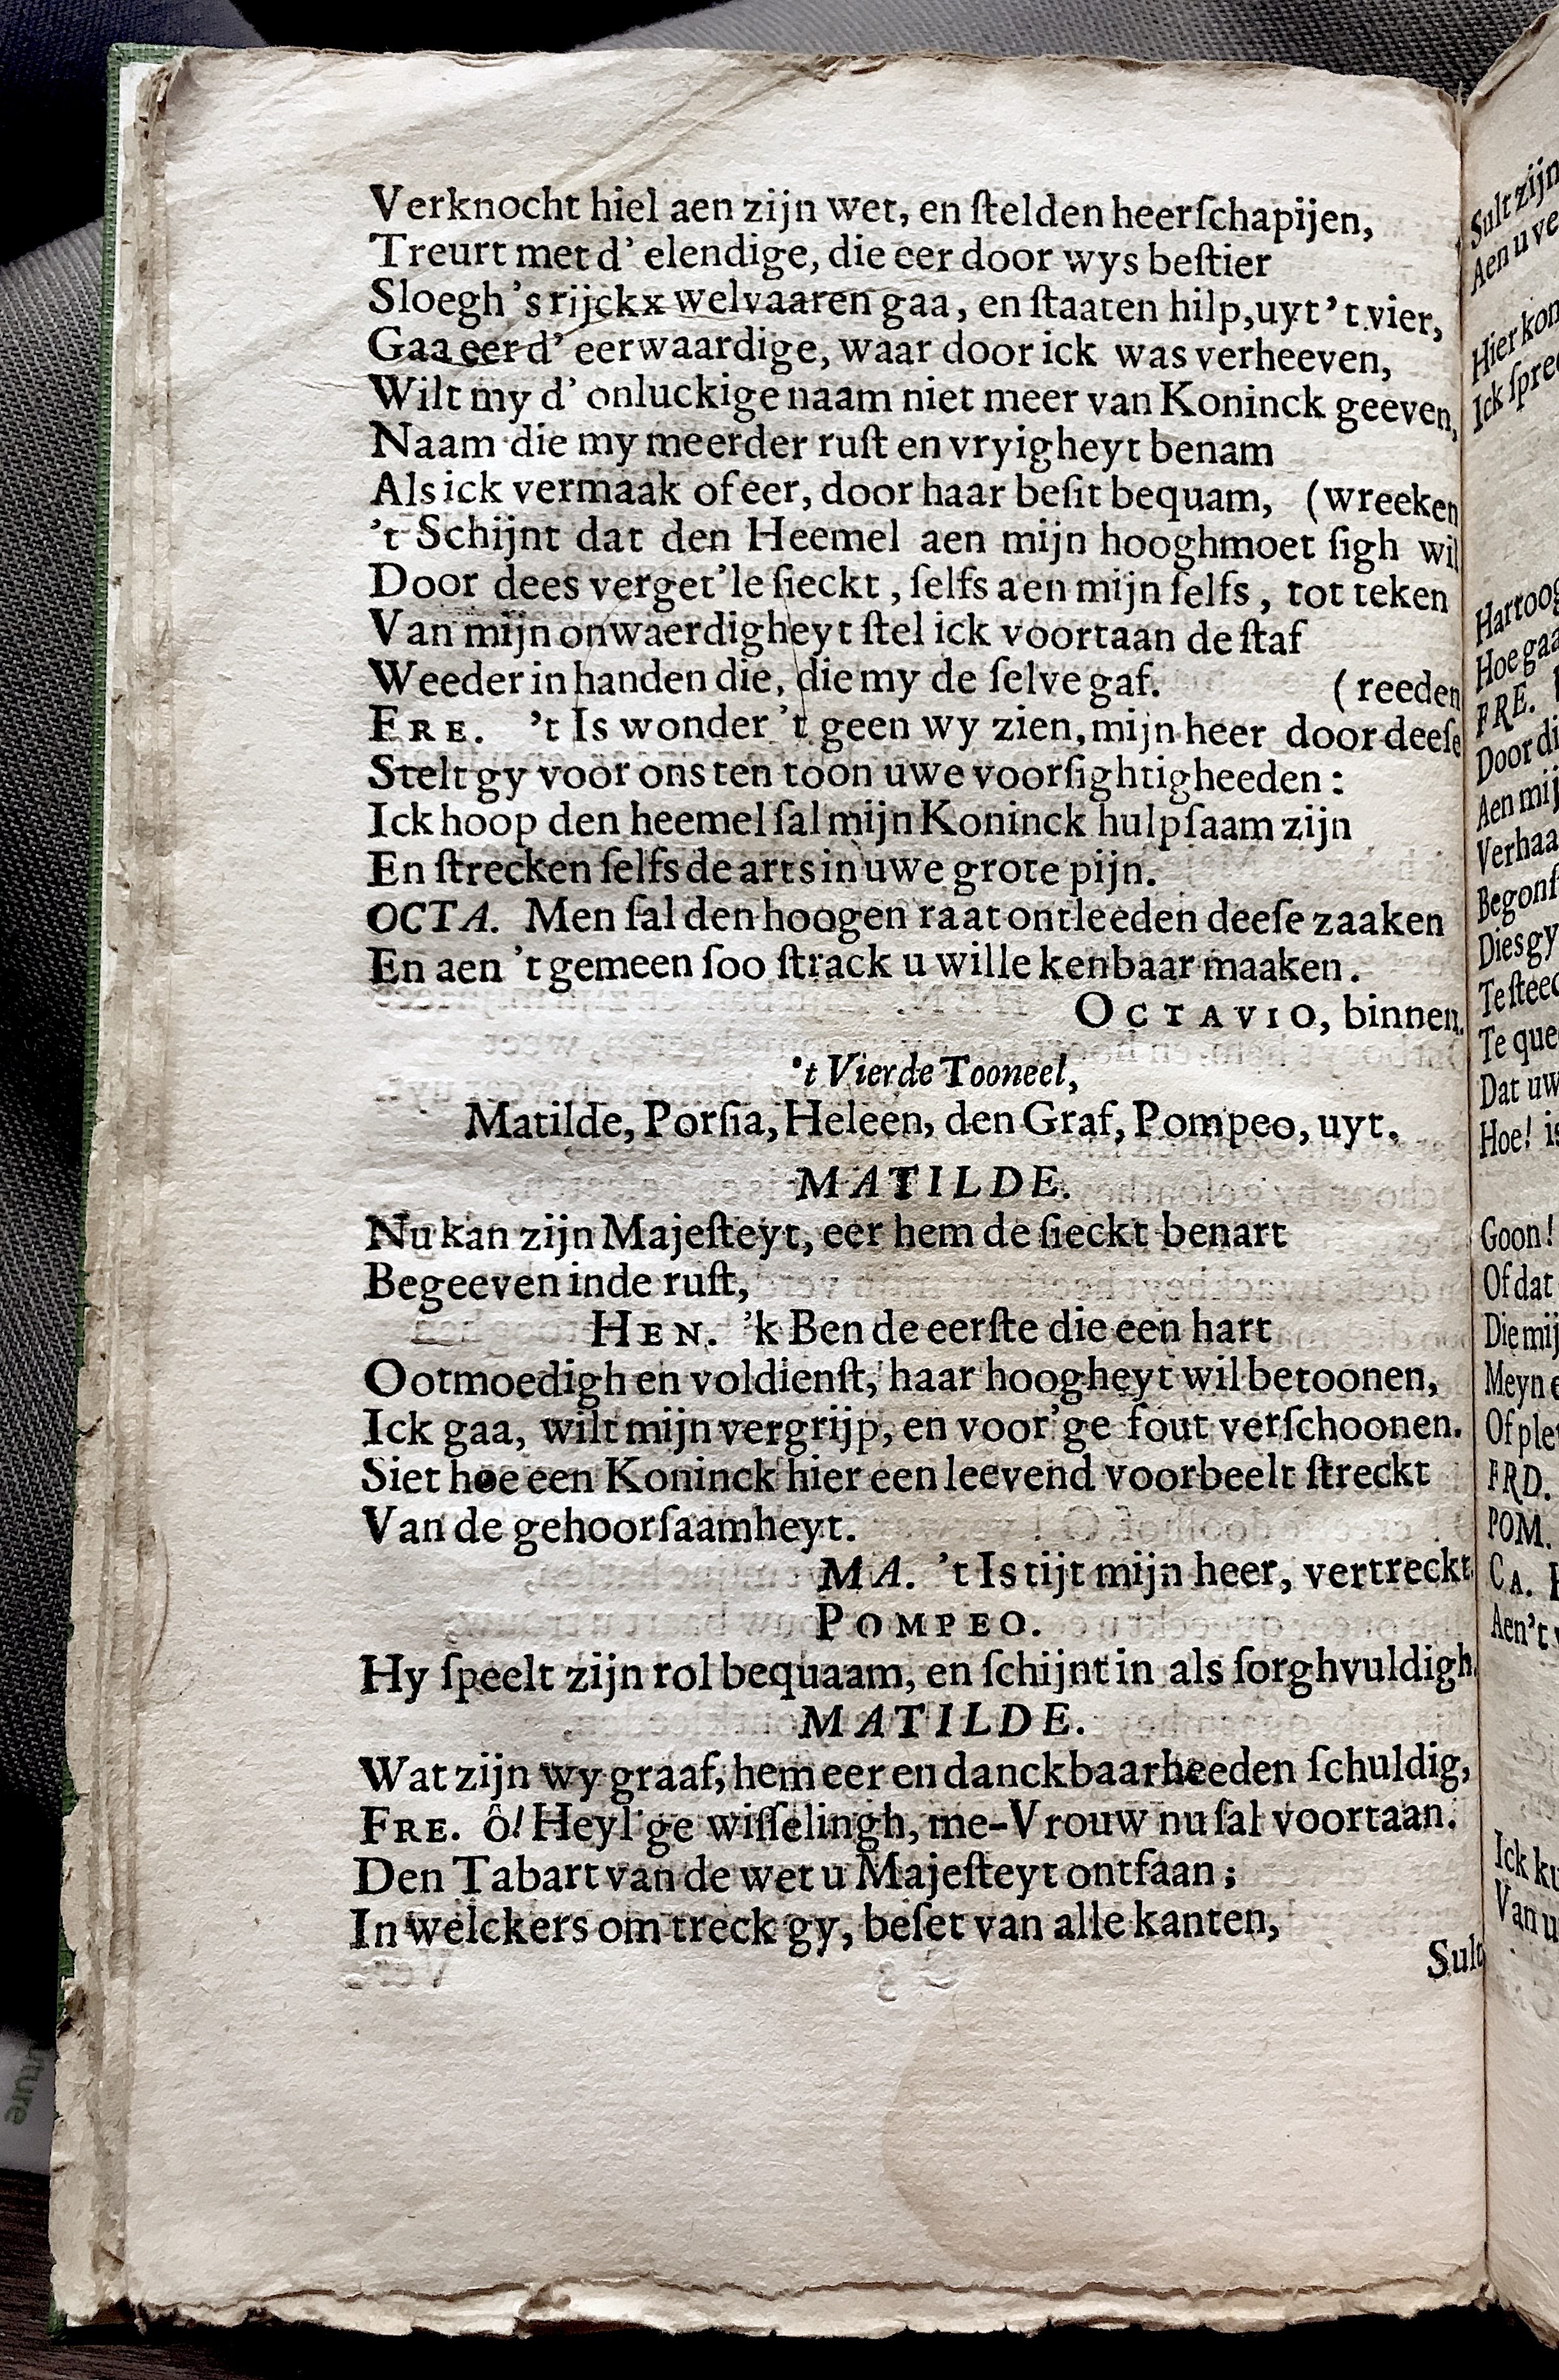 Verknocht hiel aen zijn wet, en ſtelden heerſchapijen,
Treurt met d' elendige, die eer door wys beſtier
Sloegh 's rijckx welvaaren gaa, en ſtaaten hilp, uyt 't vier,
Gaa eer d' eerwaardige, waar door ick was verheeven,
Wilt my d' onluckige naam niet meer van Koninck geeven,
Naam die my meerder ruſt en vryigheyt benam
Als ick vermaak of eer, door haar beſit bequam, (wreeken
't Schijnt dat den Heemel aen mijn hooghmoet ſigh wil
Door dees verget'le ſieckt, ſelfs aen mijn ſelfs, tot teken
Van mijn onwaerdigheyt ſtel ick voortaan de ſtaf
Weeder in handen die, die my de ſelve gaf. (reeden
FRE. 't Is wonder 't geen wy zien, mijn heer door deeſe
Stelt gy voor ons ten toon uwe voorſightigheeden:
Ick hoop den heemel ſal mijn Koninck hulpſaam zijn
En ſtrecken ſelfs de arts in uwe grote pijn.
OCTA. Men ſal den hoogen raat ontleeden deeſe zaaken
En aen 't gemeen ſoo ſtrack u wille kenbaar maaken.
OCTAVIO, binnen.
't Vierde Tooneel,
Matilde, Porſia, Heleen, den Graf, Pompeo, uyt.
MATILDE.
Nu kan zijn Majeſteyt, eer hem de ſieckt benart
Begeeven inde ruſt,
HEN. 'k Ben de eerſte die een hart
Ootmoedigh en voldienſt, haar hoogheyt wil betoonen,
Ick gaa, wilt mijn vergrijp, en voor'ge fout verſchoonen.
Siet hoe een Koninck hier een leevend voorbeelt ſtreckt
Van de gehoorſaamheyt.
MA. 't Is tijt mijn heer, vertreckt.
POMPEO.
Hy ſpeelt zijn rol bequaam, en ſchijnt in als ſorghvuldigh.
MATILDE.
Wat zijn wy graaf, hem eer en danckbaarheeden ſchuldig,
FRE. ô! Heyl'ge wiſſelingh, me-Vrouw nu ſal voortaan.
Den Tabart van de wet u Majeſteyt ontfaan;
In welckers om treck gy, beſet van alle kanten,
Sult
Sult zijn
Aen u ve
Hier kon
Ick ſpree
Hartoog
Hoe gaa
FRE.
Door di
Aen mij
Verhaa
Begonſ
Dies gy
Te ſteed
Te que
Dat uw
Hoe! is
Goon!
Of dat
Die mij
Meyn e
Of ple
FRD.
POM.
CA.
Aen't
Ick k
Van u